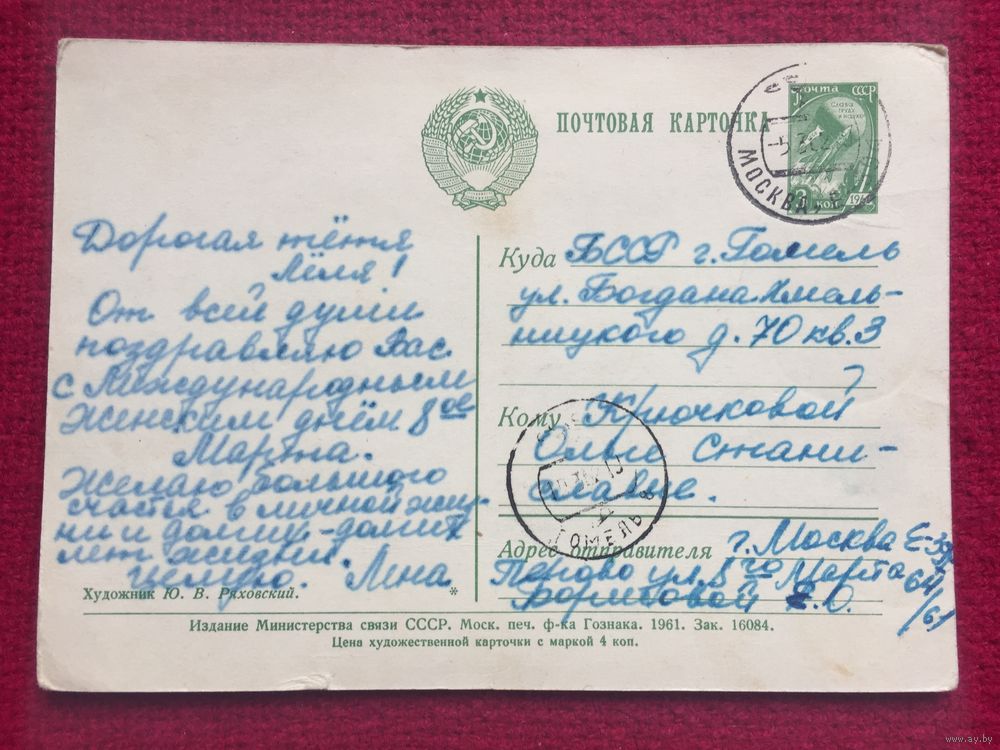 ПОЧТОВАЯ КАРТОЧКА
Почта СССР
СЛАВА
ТРУДУ
И НАУКЕ!
3 коп 1961
МОСКВА
Дорогая тётя
Лёля!
От всей души
поздравляю Вас
с Международным
женским днём 8ое
Марта.
Желаю большого
счастья в личной жиз-
ни и долгих-долгих
лет жизни.
Целую. Лена
Художник Ю. В. Ряховский.
*
Куда БССР г. Гомель
ул. Богдана Хмель-
ницкого д. 70 кв. 3
Кому Крючковой
Ольге Стани-
славне.
ГОМЕЛЬ 8
Адрес отправителя г. Москва Е-
Перово ул. 8го Марта
Издание Министерства связи СССР. Моск. печ. ф-ка Гознака. 1961. Зак. 16084.
Цена художественной карточки с маркой 4 коп.
www.ay.by